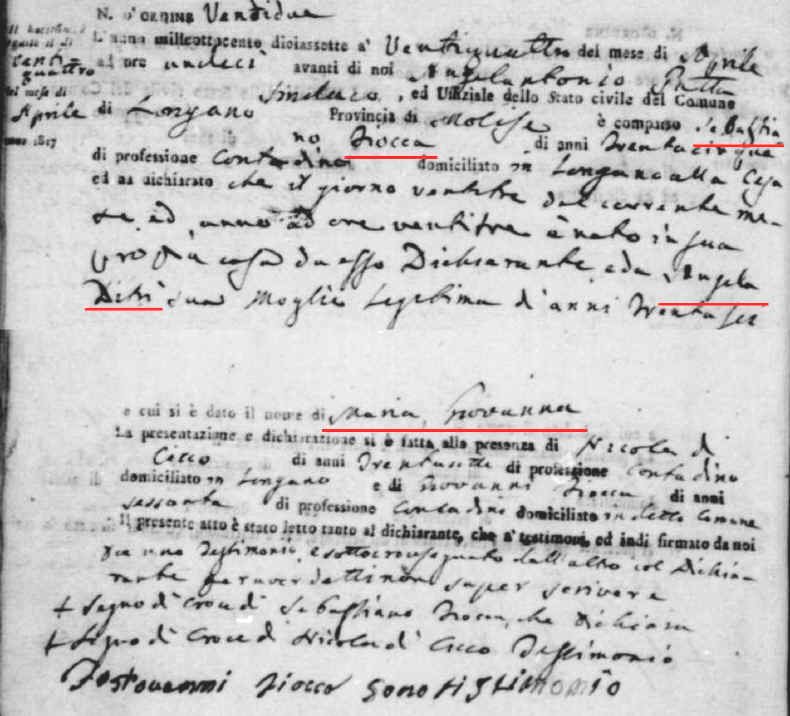 N. D'ORDINE Ventidue
L'anno milleottocento diciassette a' Ventiquattro del mese di Aprile
ad ore undeci avanti di noi Angelantonio
Sindaco, ed Uffiziale dello Stato civile del Comune
di Longano Provincia di Molise è comparso Sebastia
no Iiocca di anni Trentacinque
di professione Contadino domiciliato in Longano alla
ed ha dichiarato che il giorno ventitre del corrente me-
se, ed anno ad ore ventitre è nato in sua
propria casa da esso Dichiarante, e da Angela
Ditri sua Moglie legitima d'anni Trentasei
Aprile
anno 1817
e cui si è dato il nome di Maria Giovanna
La presentazione e dichiarazione si è fatta alla presenza di Nicola di
Cicco di anni Trentasette di professione Contadino
domiciliato in Longano e di Giovanni Iiocca di anni
sessanta di professione Contadino domiciliato in detto Comune
Il presente atto è stato letto tanto al dichiarante, che a' testimonj, ed indi firmato da noi
da uno Testimonio, e sottocrocesegnato dall'altro col Dichia-
rante per aver detti non saper scrivere
+ Segno di Croce di Sebastiano Iiocca, che Dichiara
+ Segno di Croce di Nicola di Cicco Testimonio
Iiocca sono tistimonio